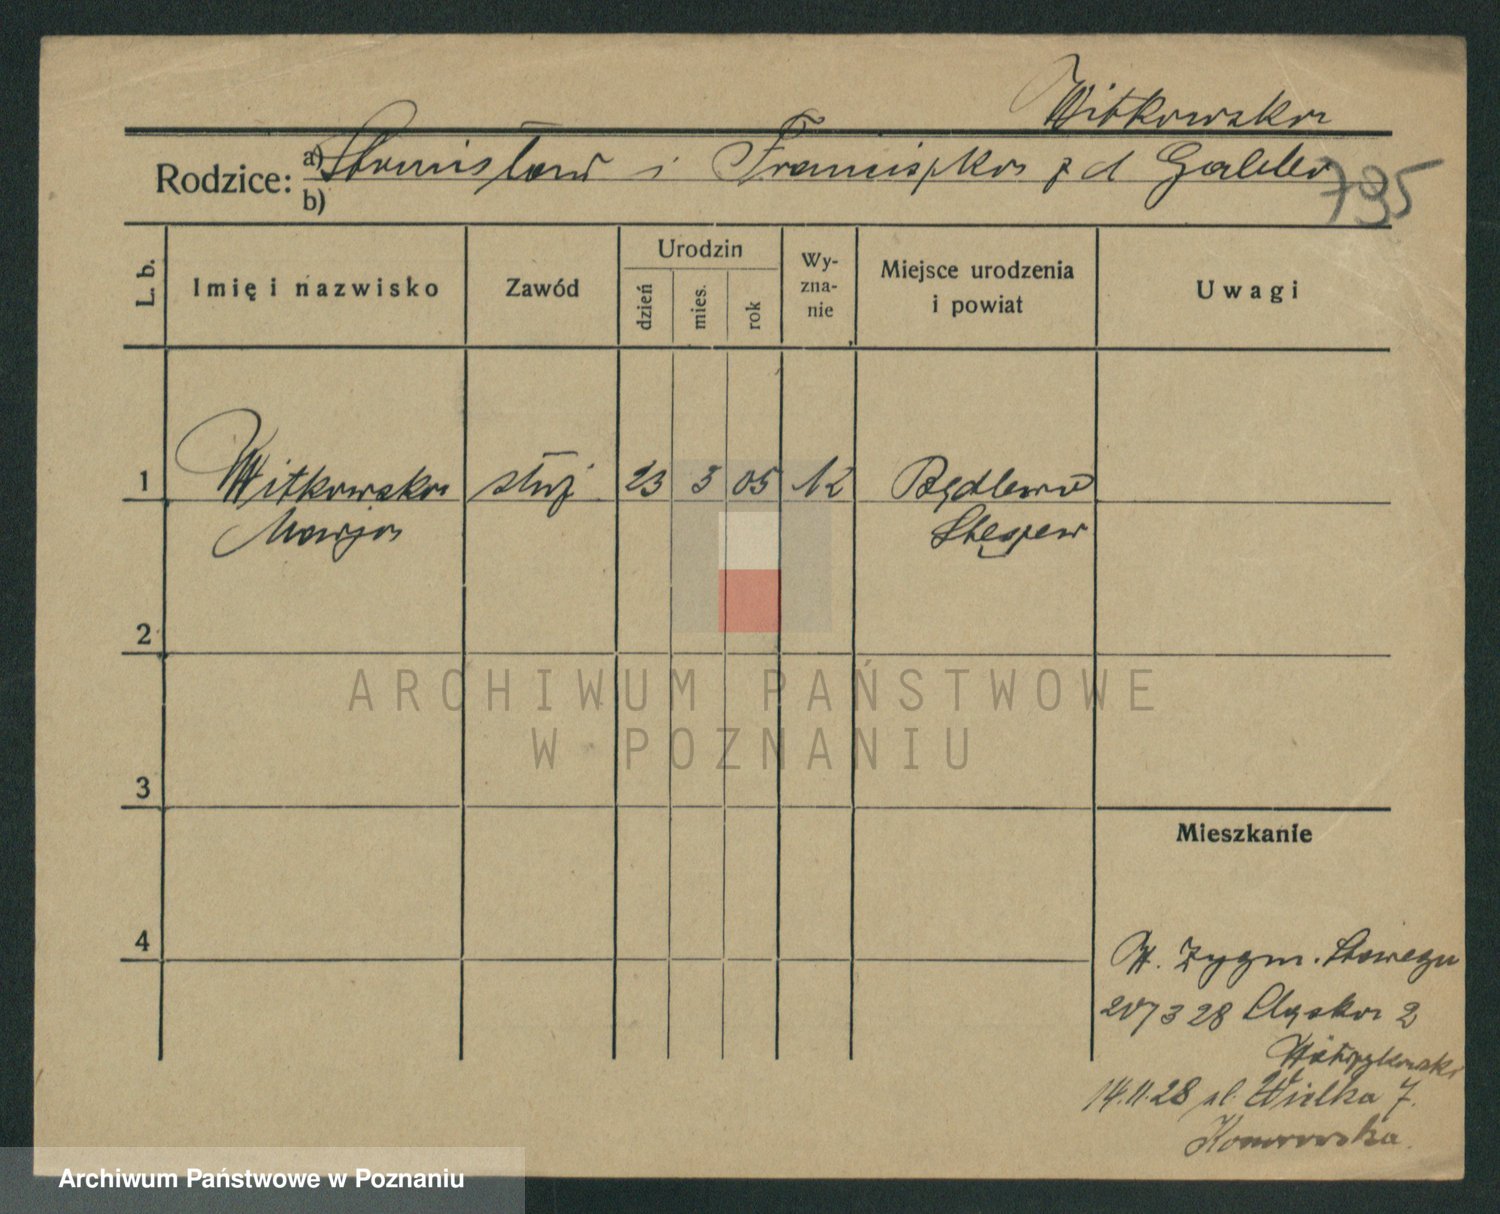 Witkowska
Rodzice: a) Stanisław i Franciszka z d
b)
795
L. b.
Imię i nazwisko
Zawód
Urodzin
dzień
mies.
rok
Wy-
zna-
nie
Miejsce urodzenia
i powiat
Uwagi
1
Witkowska służ 23 3 05 Będlewo
Marja Stęszew
2
3
4
Mieszkanie
Zygm.
20/3 28 Śląska 2
14.11.28 ul. Wielka 7.
Komorowska
ARCHIWUM PAŃSTWOWE
W POZNANIU
Archiwum Państwowe w Poznaniu